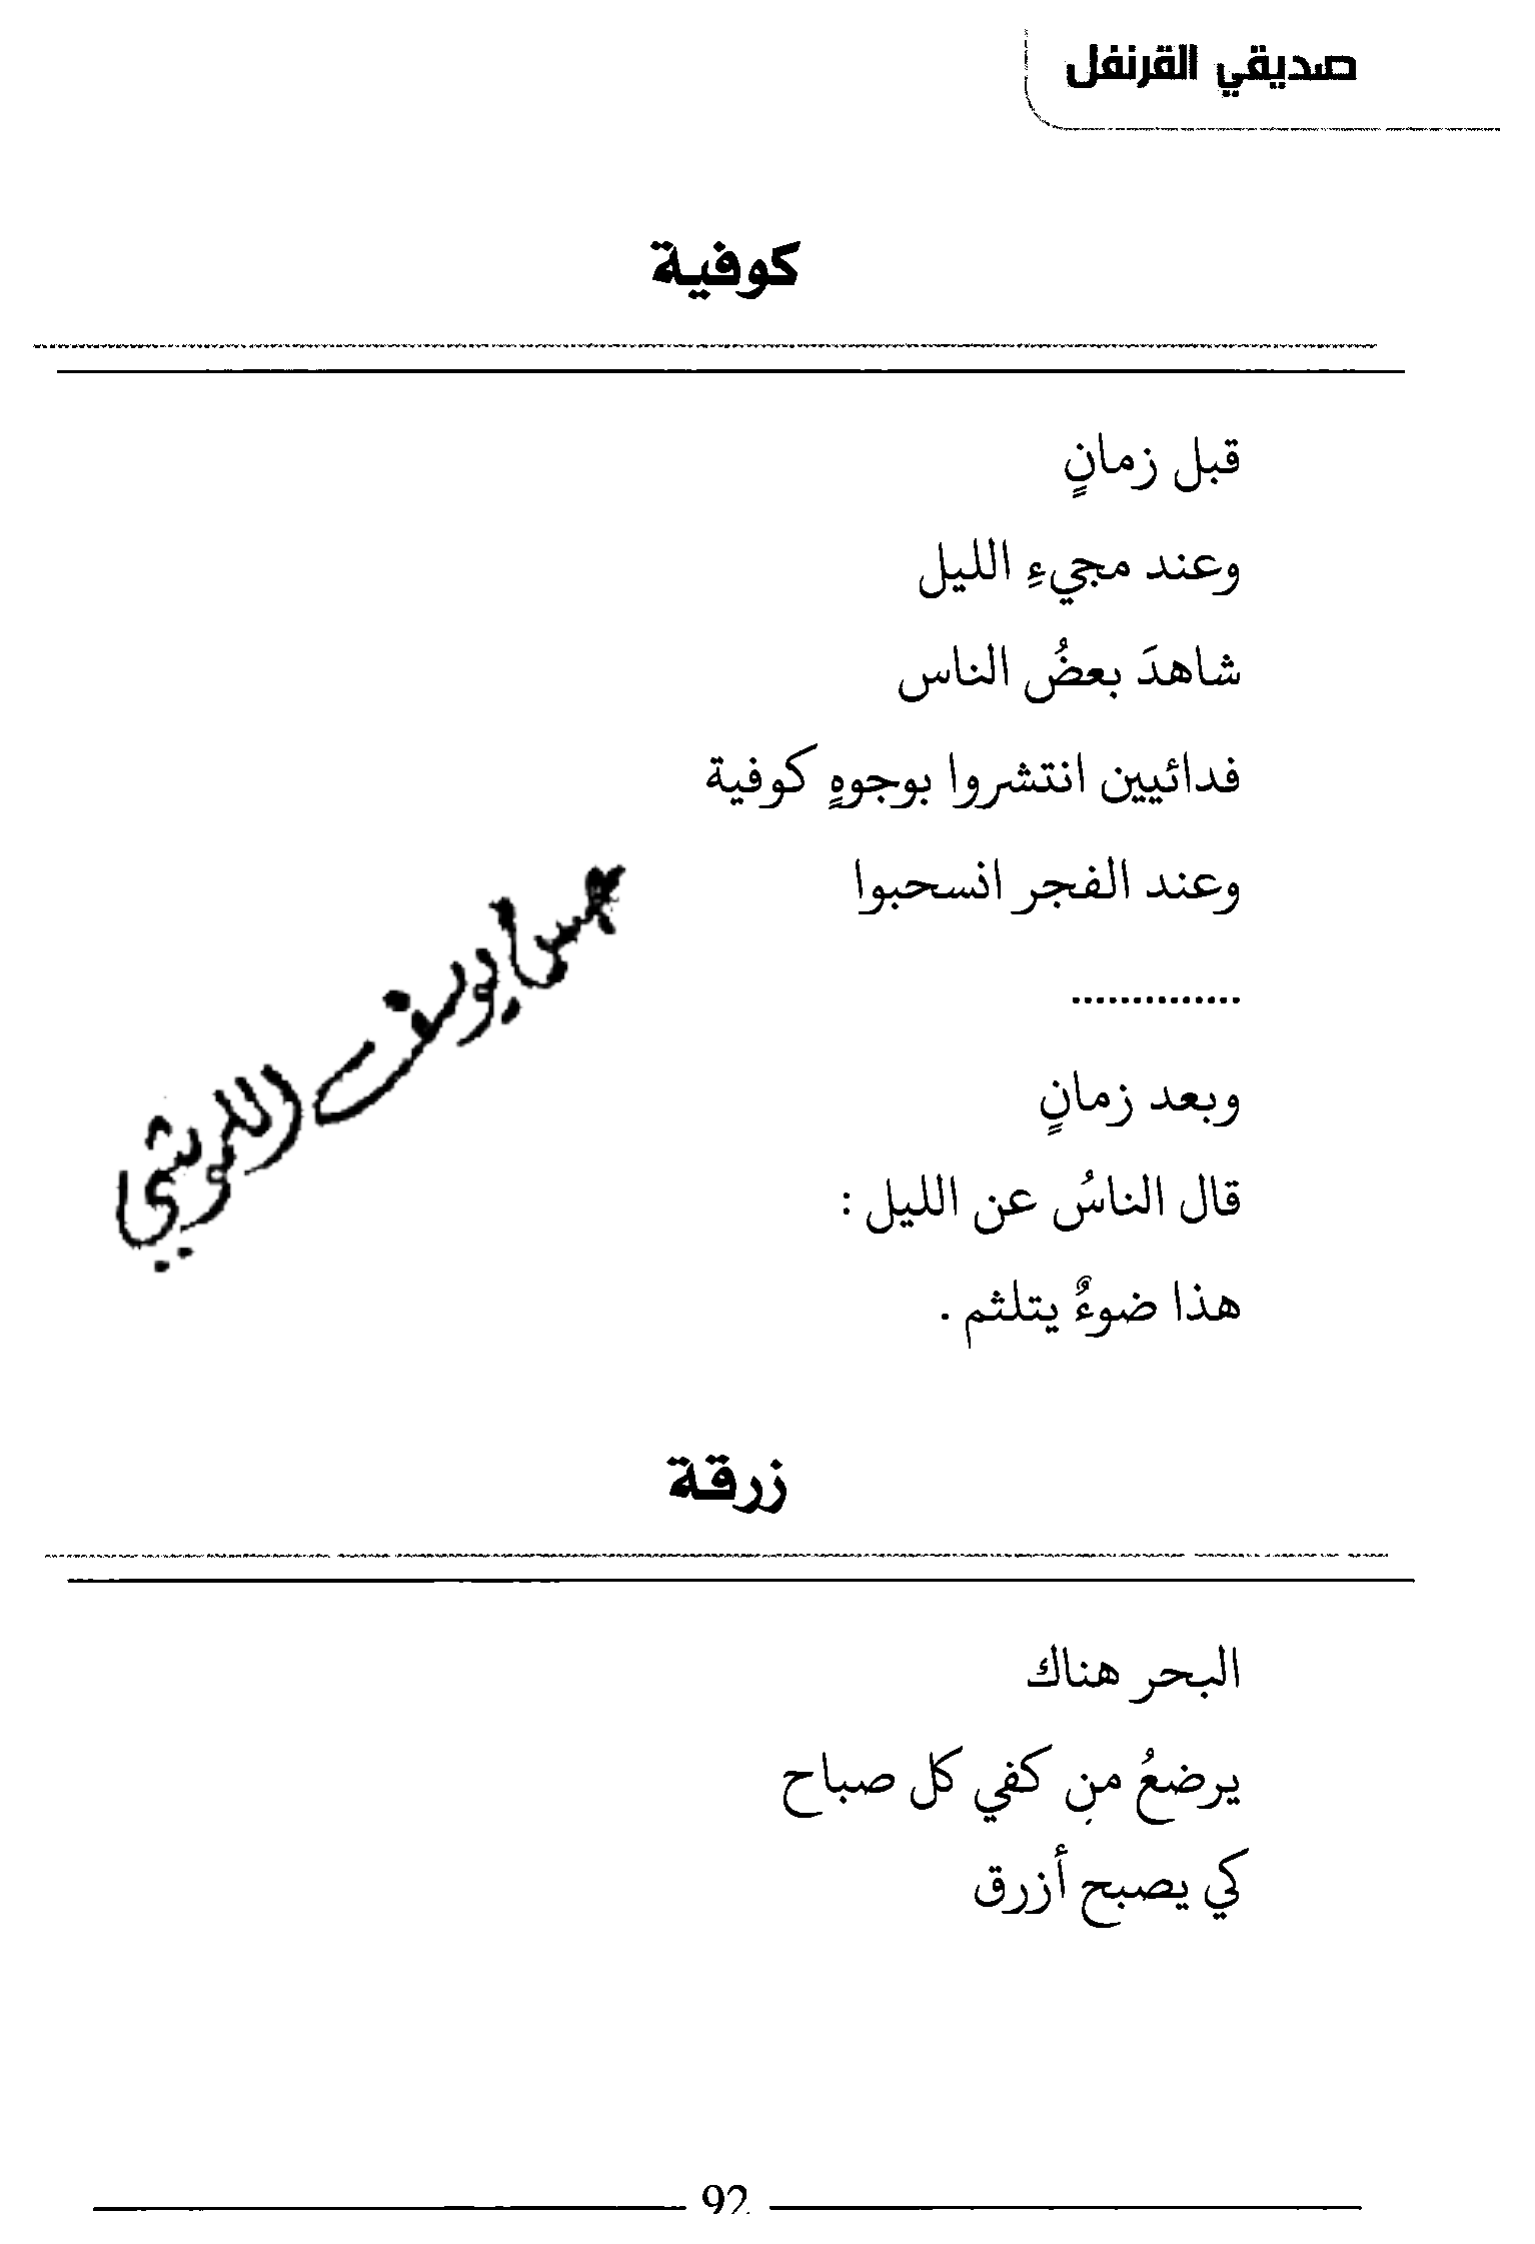 صديقي القرنفل
كوفية
قبل زمانٍ
وعند مجيءِ الليل
شاهدَ بعضُ الناس
فدائيين انتشروا بوجوهٍ كوفية
وعند الفجر انسحبوا
..............
وبعد زمانٍ
قال الناسُ عن الليل :
هذا ضوءٌ يتلثم .
زرقة
البحر هناك
يرضعُ من كفي كل صباح
كي يصبح أزرق
92